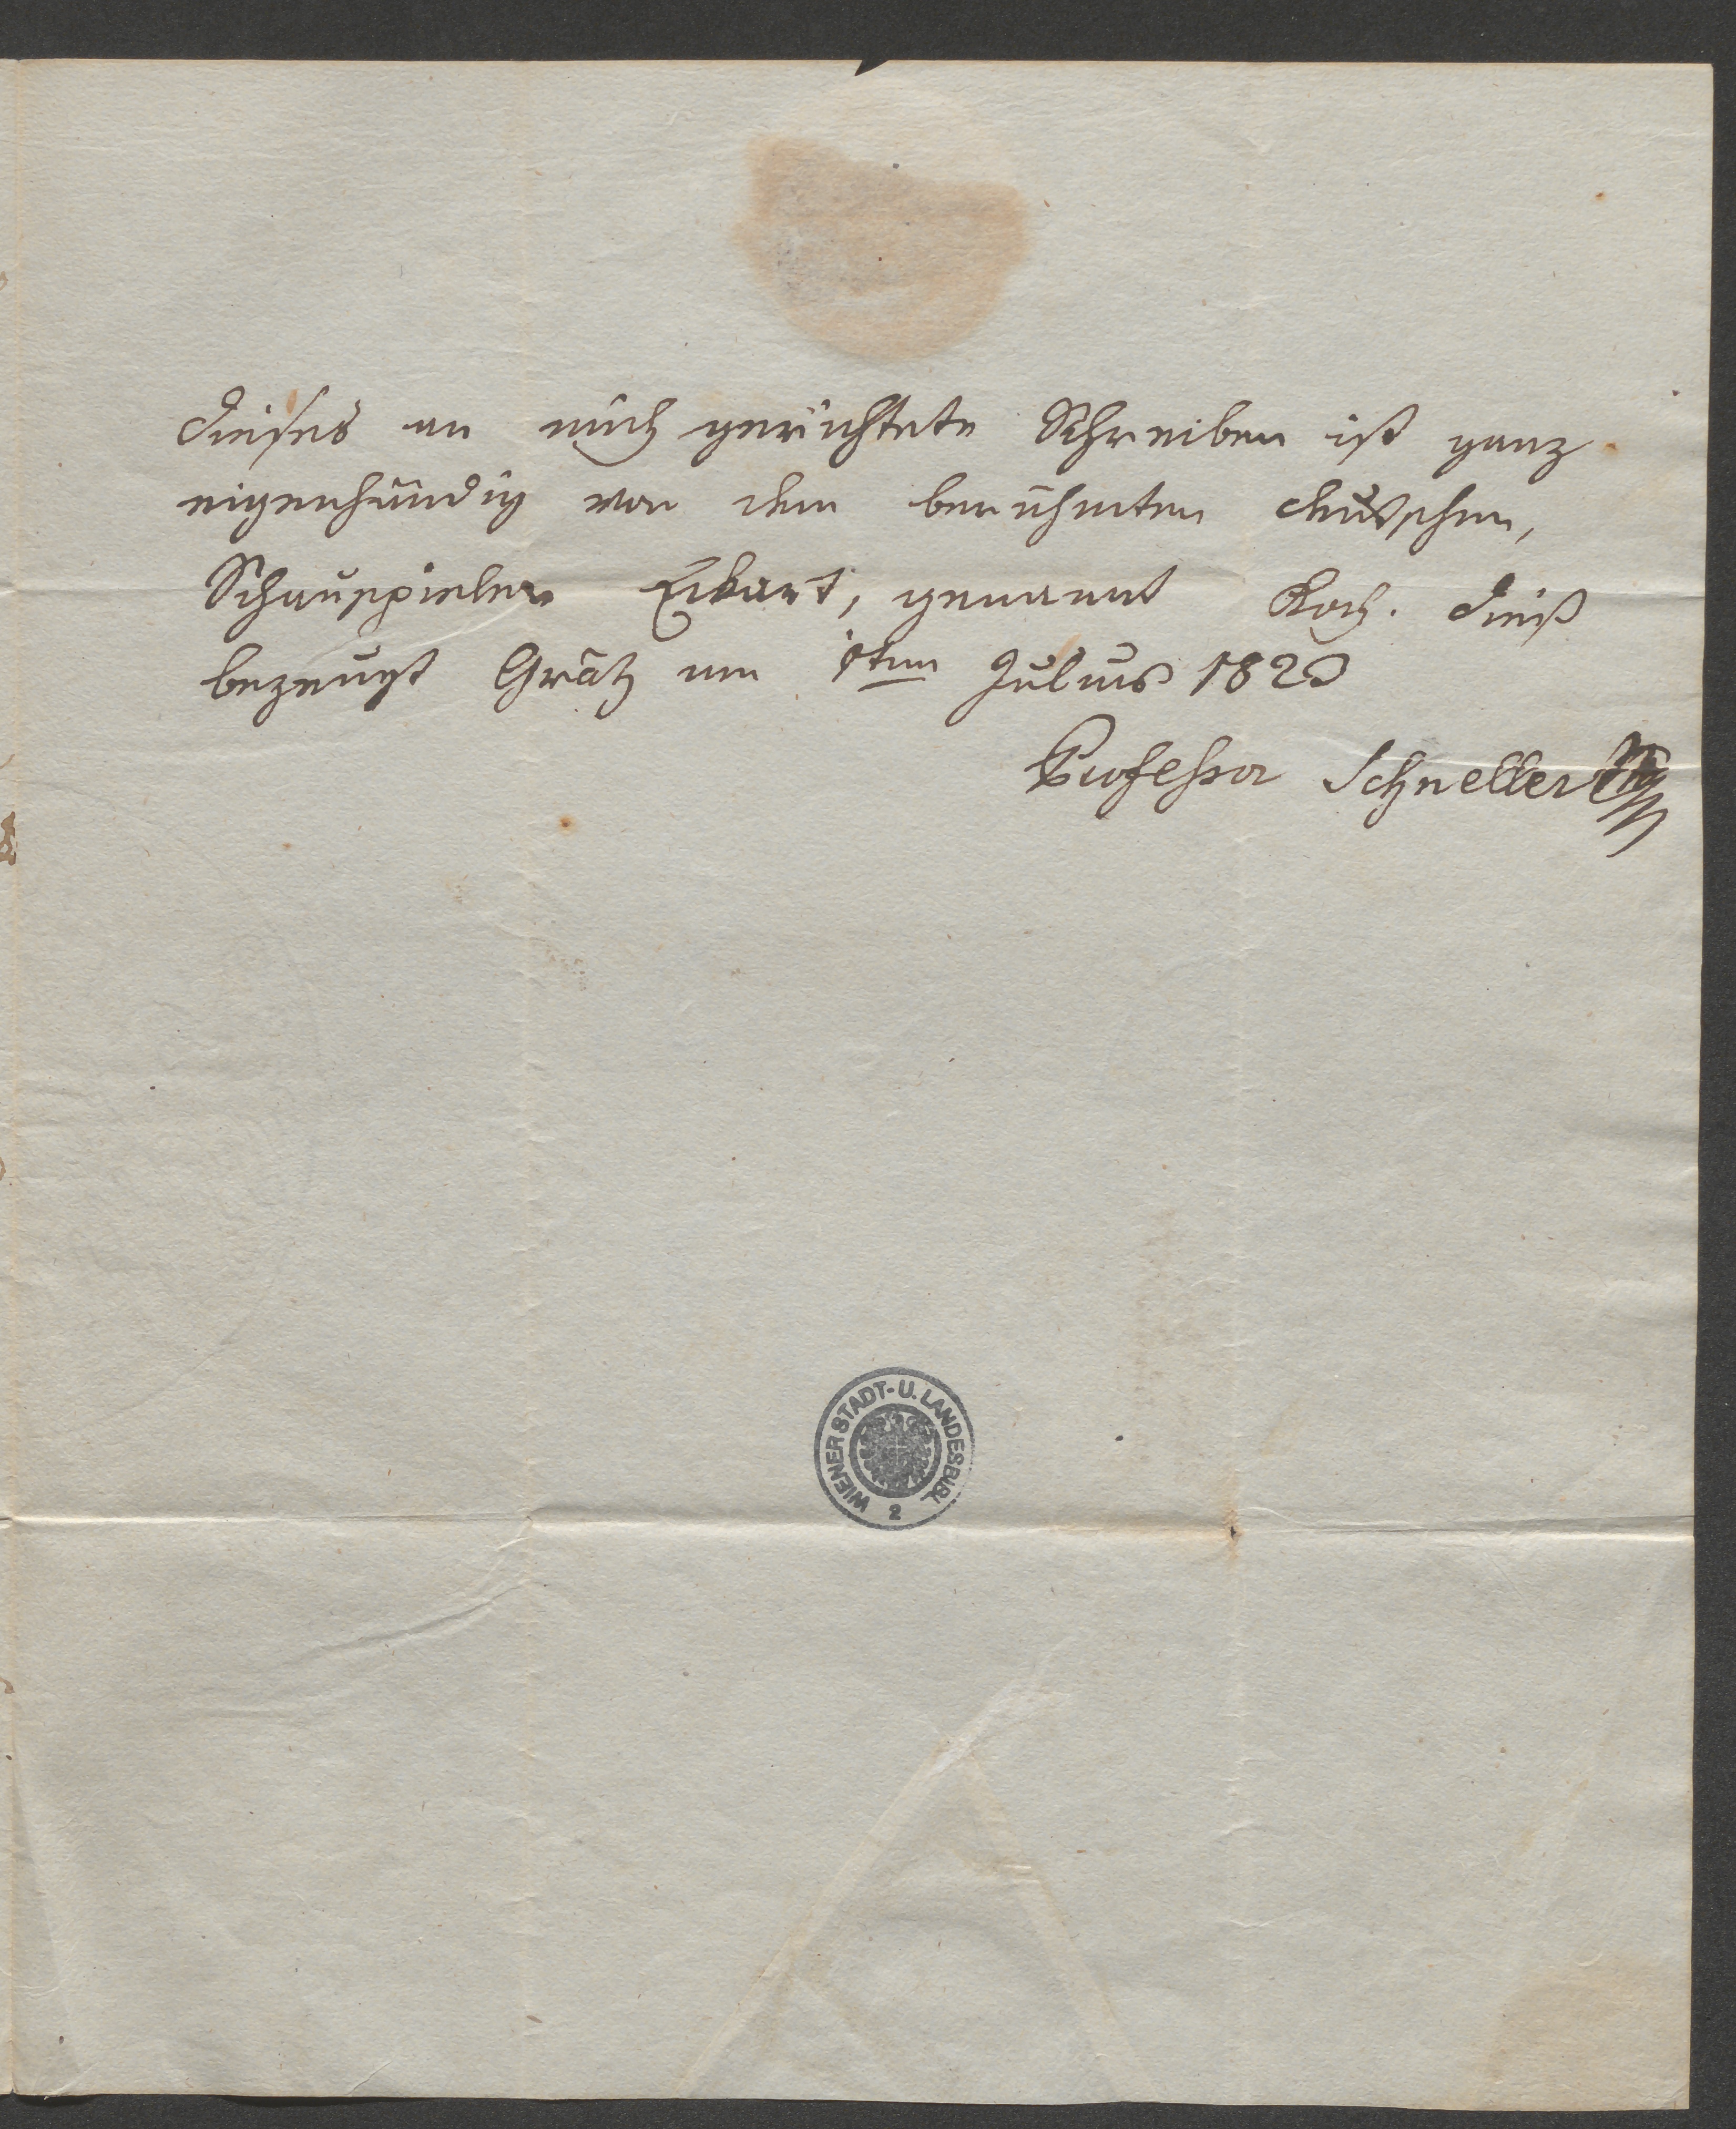 Dieses an mich gerichtete Schreiben ist ganz
eigenhändig von dem berühmten deutschen,
Schauspieler Eckart, genannt Koch. Dieß
bezeugt Grätz am 1ten Julius 1820
Professor Schneller
WIENER STADT- U. LANDESBIBL.
2